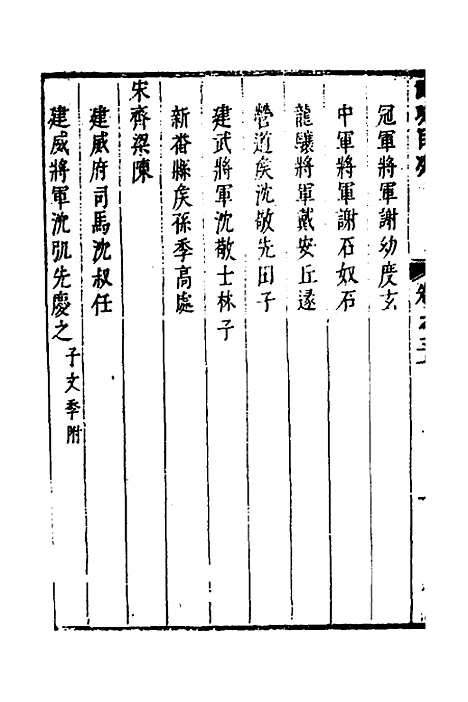 冠軍將軍謝幼度玄
中軍將軍謝石奴石
龍驤將軍戴安丘逯
營道矦沈敬先田子
建武將軍沈敬士林子
新番縣矦孫季高處
宋齊梁陳
建威府司馬沈叔任
建威將軍沈弘先慶之子文季附